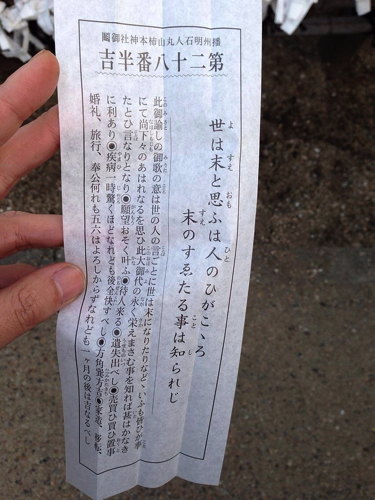 播州明石人丸山柿本神社御鬮
第二十八番半吉
世は末と思ふは人のひがこゝろ
末のすゑたる事は知られじ
此御諭しの御歌の意は世の人の言ごとに世は末になりたりなどゝいふも皆ひが事
にて尚下々のあはれなるを思ひ此大御代の永く栄えまさむ事を知れば甚はかなき
たとひ言なりとなり◉願望おそく叶ふ◉待人来る◉遺失出べし◉売買ひ買ひ置事
に利あり◉疾病一時驚くほどなれども後全快すべし◉方角巽方吉◉家造、移転、
婚礼、旅行、奉公何れも五六はよろしからずなれども一ヶ月の後は吉なるべし